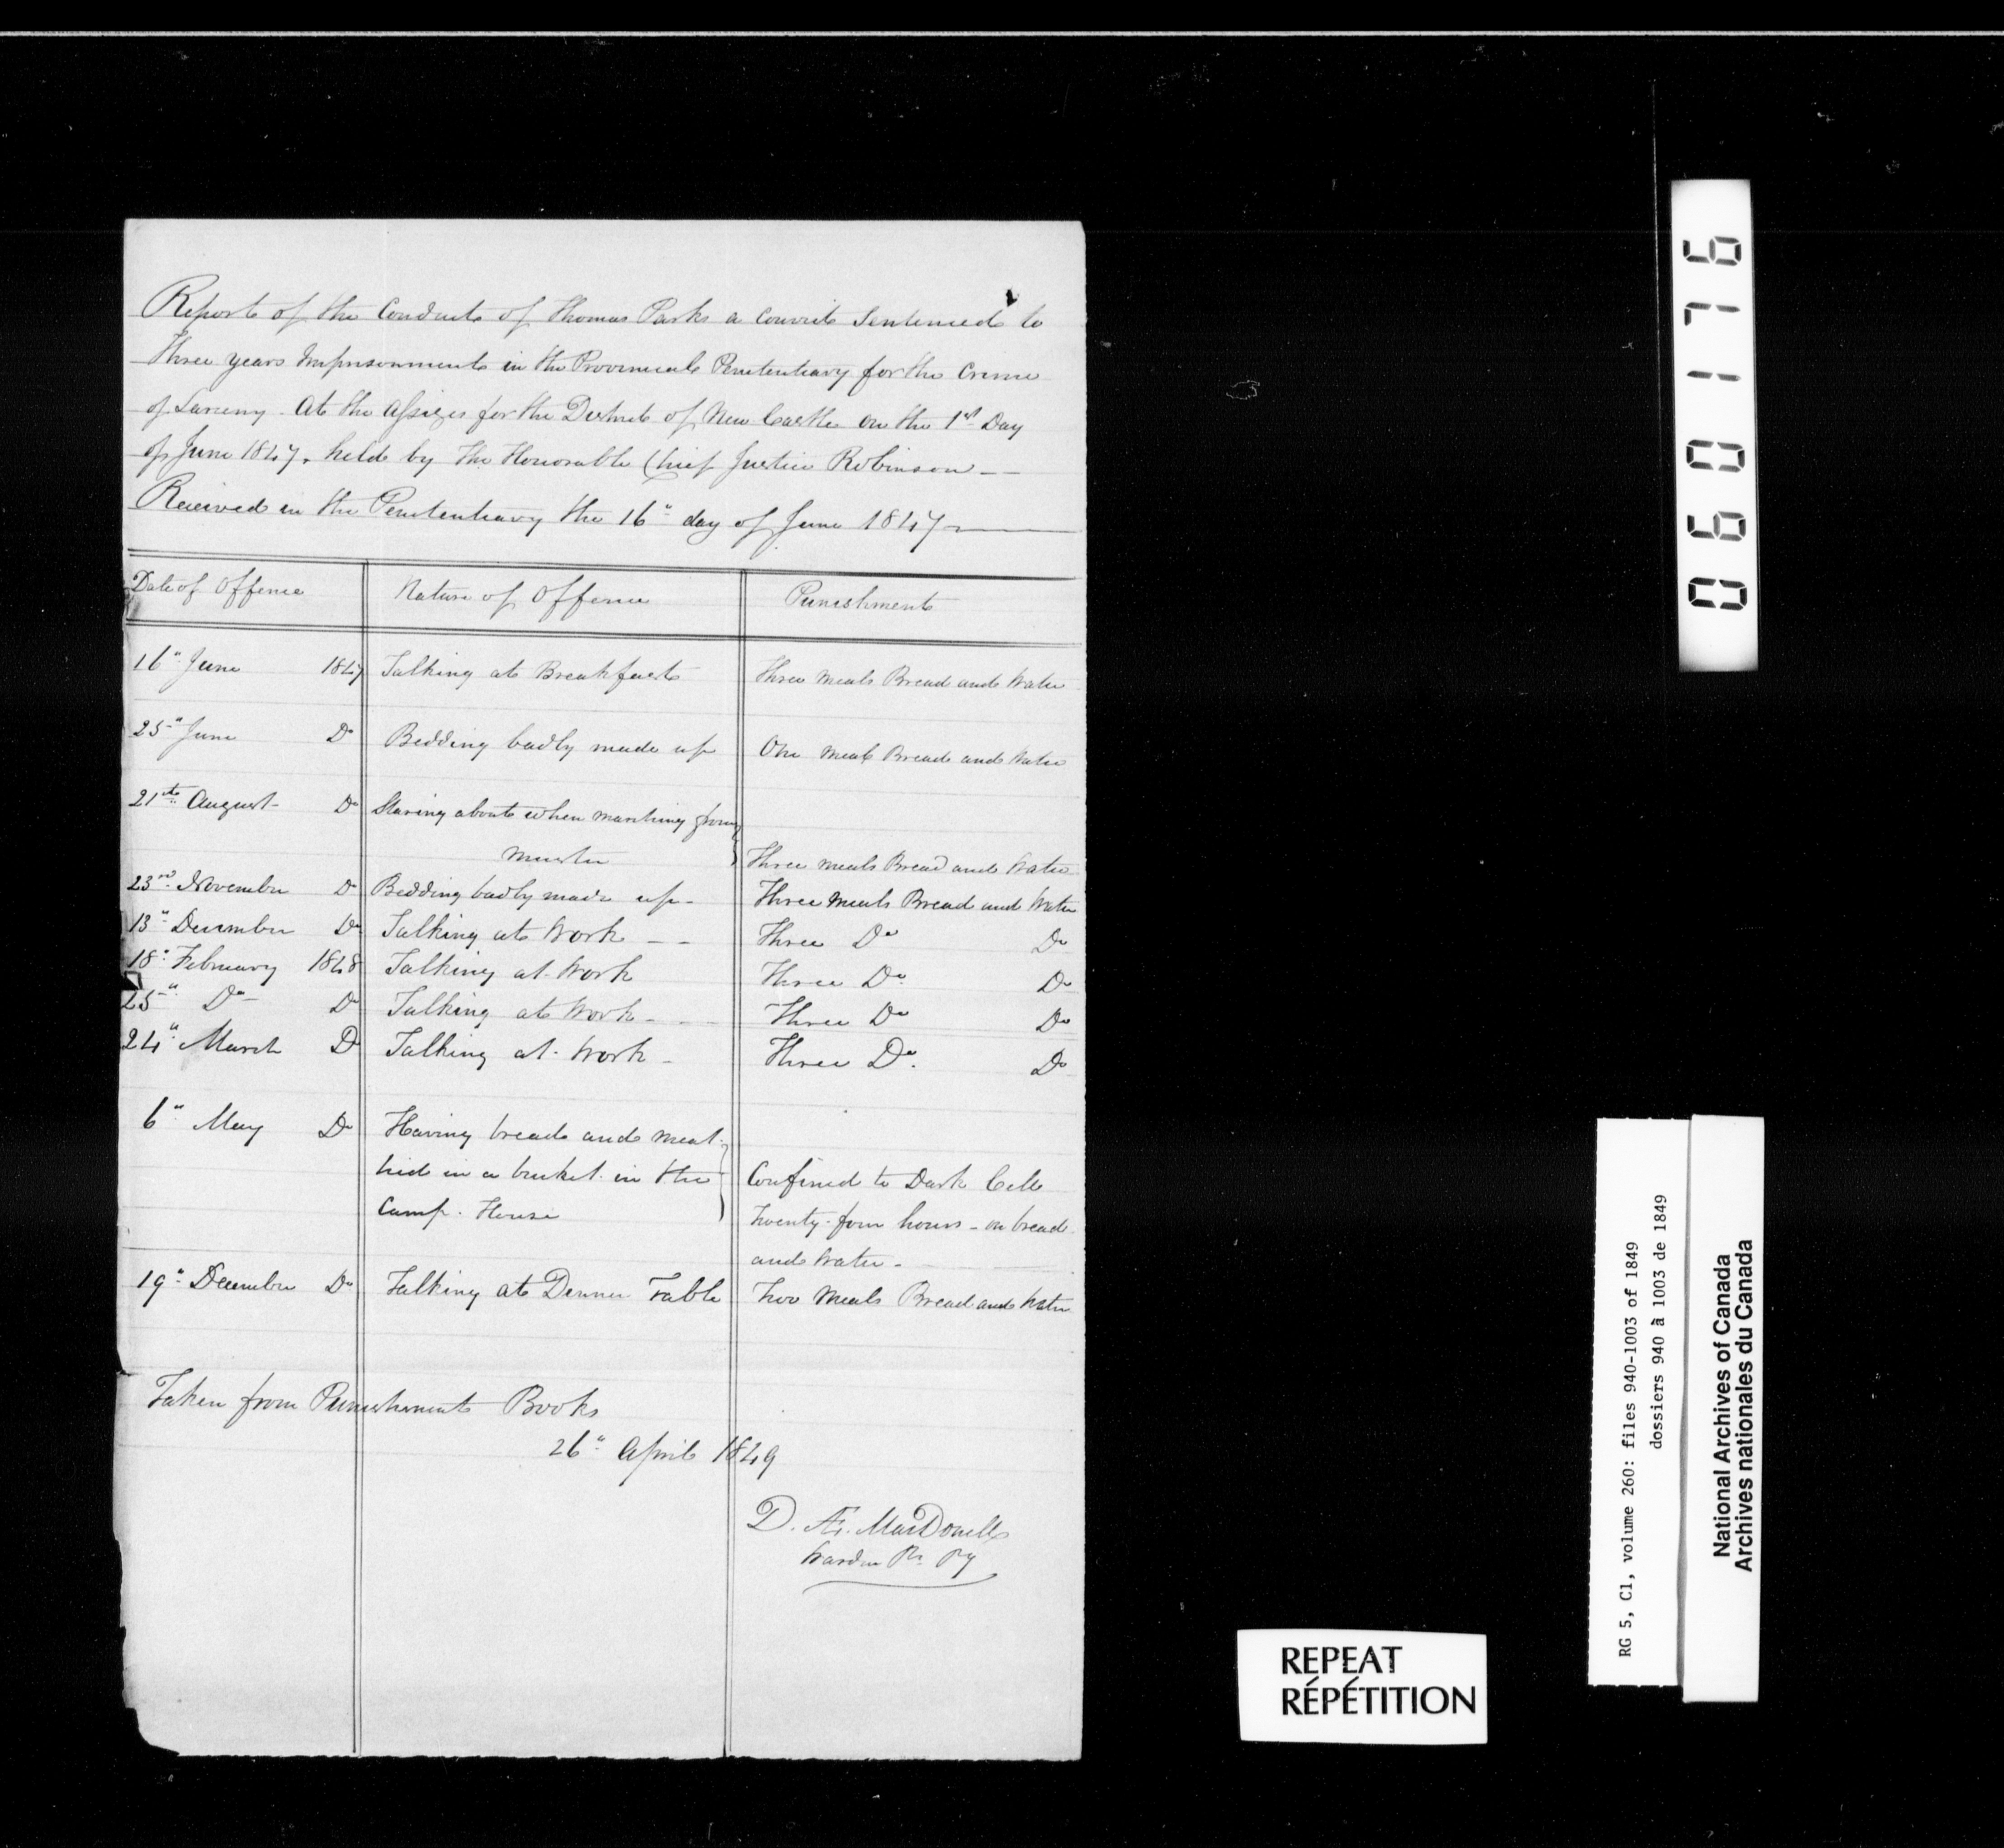 Report of the Conduct of Thomas Parks a Convict Sentenced to
Three years Imprisonment in the Provincial Penitentiary for the Crime
of Larceny At the Assizes for the District of New Castle on the 1st Day
of June 1847, held by The Honorable Chief Justice Robinson
Received in the Penitentiary the 16" day of June 1847
Date of Offence Nature of Offence Punishment
16" June 1847 Talking at Breakfast Three Meals Bread and Water
25" June Do Bedding badly made up One Meal Bread and Water
21st August Do Staring about when marching from
muster Three meals Bread and Water
23rd November Do Bedding badly made up Three Meals Bread and Water
13" December Do Talking at Work Three Do Do
18" February 1848 Talking at Work Three Do Do
25" Do Do Talking at Work Three Do Do
24" March Do Talking at Work Three Do Do
6" May Do Having bread and meat
hid in a bucket in the Confined to Dark Cell
Camp House Twenty four hours - on bread
and Water -
19" December Do Talking at Dinner Table Two Meals Bread and Water
Taken from Punishment Books
26" April 1849
D. Æ. MacDonell
Warden Pr. Py
060176
RG 5, C1, volume 260: files 940-1003 of 1849
dossiers 940 à 1003 de 1849
National Archives of Canada
Archives nationales du Canada
REPEAT
RÉPÉTITION